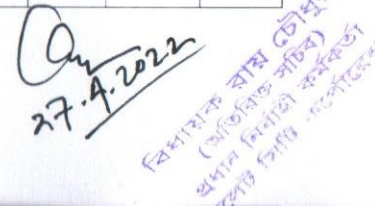 27.4.2022
বিধায়ক রায় চৌধু
(অতিরিক্ত সচিব)
প্রধান নির্বাহী কর্মকর্তা
লেট সিটি কর্পোরেশ